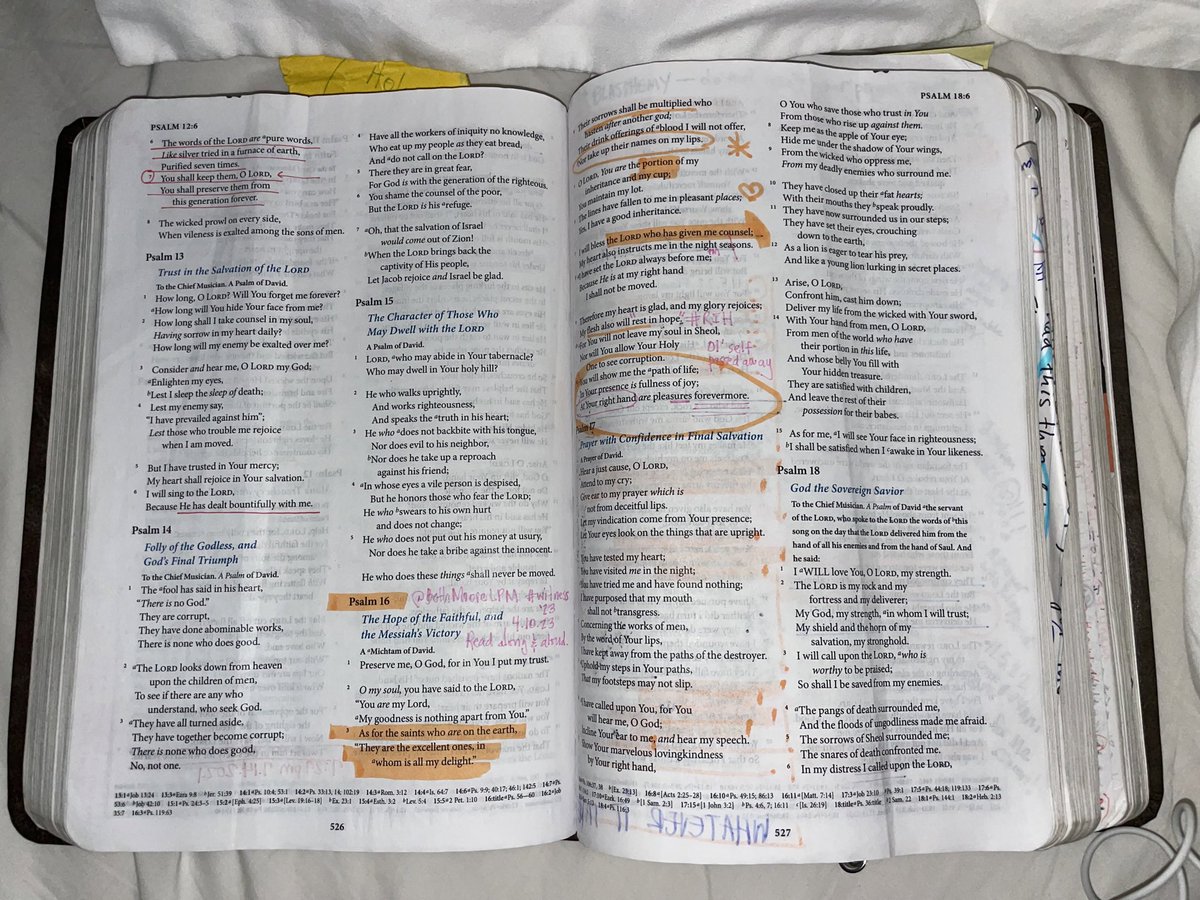 PSALM 12:6
6 The words of the LORD are ᵃpure words,
Like silver tried in a furnace of earth,
Purified seven times.
7 You shall keep them, O LORD,
You shall preserve them from
this generation forever.
8 The wicked prowl on every side,
When vileness is exalted among the sons of men.
Psalm 13
Trust in the Salvation of the LORD
To the Chief Musician. A Psalm of David.
1 How long, O LORD? Will You forget me forever?
ᵃHow long will You hide Your face from me?
2 How long shall I take counsel in my soul,
Having sorrow in my heart daily?
How long will my enemy be exalted over me?
3 Consider and hear me, O LORD my God;
ᵃEnlighten my eyes,
ᵇLest I sleep the sleep of death;
4 Lest my enemy say,
"I have prevailed against him";
Lest those who trouble me rejoice
when I am moved.
5 But I have trusted in Your mercy;
My heart shall rejoice in Your salvation.
6 I will sing to the LORD,
Because He has dealt bountifully with me.
Psalm 14
Folly of the Godless, and
God's Final Triumph
To the Chief Musician. A Psalm of David.
1 The ᵃfool has said in his heart,
"There is no God."
They are corrupt,
They have done abominable works,
There is none who does good.
2 ᵃThe LORD looks down from heaven
upon the children of men,
To see if there are any who
understand, who seek God.
3 ᵃThey have all turned aside,
They have together become corrupt;
There is none who does good,
No, not one.
4 Have all the workers of iniquity no knowledge,
Who eat up my people as they eat bread,
And ᵃdo not call on the LORD?
5 There they are in great fear,
For God is with the generation of the righteous.
6 You shame the counsel of the poor,
But the LORD is his ᵃrefuge.
7 ᵃOh, that the salvation of Israel
would come out of Zion!
ᵇWhen the LORD brings back the
captivity of His people,
Let Jacob rejoice and Israel be glad.
Psalm 15
The Character of Those Who
May Dwell with the LORD
A Psalm of David.
1 LORD, ᵃwho may abide in Your tabernacle?
Who may dwell in Your holy hill?
2 He who walks uprightly,
And works righteousness,
And speaks the ᵃtruth in his heart;
3 He who ᵃdoes not backbite with his tongue,
Nor does evil to his neighbor,
ᵇNor does he take up a reproach
against his friend;
4 ᵃIn whose eyes a vile person is despised,
But he honors those who fear the LORD;
He who ᵇswears to his own hurt
and does not change;
5 He who does not put out his money at usury,
Nor does he take a bribe against the innocent.
He who does these things ᵃshall never be moved.
Psalm 16 @BethMooreLPM #witness
'23
4.10.23
Read along & aloud.
The Hope of the Faithful, and
the Messiah's Victory
A ᵃMichtam of David.
1 Preserve me, O God, for in You I put my trust.
2 O my soul, you have said to the LORD,
"You are my Lord,
ᵃMy goodness is nothing apart from You."
3 As for the saints who are on the earth,
"They are the excellent ones, in
ᵃwhom is all my delight."
526
PSALM 18:6
Their sorrows shall be multiplied who
hasten after another god;
Their drink offerings of ᵃblood I will not offer,
Nor take up their names on my lips.
O LORD, You are the portion of my
inheritance and my cup;
You maintain my lot.
The lines have fallen to me in pleasant places;
Yes, I have a good inheritance.
I will bless the LORD who has given me counsel;
My heart also instructs me in the night seasons.
ᵃI have set the LORD always before me;
Because He is at my right hand
I shall not be moved.
Therefore my heart is glad, and my glory rejoices;
My flesh also will rest in hope. #RIH
ᵃFor You will not leave my soul in Sheol,
Nor will You allow Your Holy
One to see corruption.
Ol' self
passed away
You will show me the ᵃpath of life;
In Your presence is fullness of joy;
At Your right hand are pleasures forevermore.
Psalm 17
Prayer with Confidence in Final Salvation
A Prayer of David.
Hear a just cause, O LORD,
Attend to my cry;
Give ear to my prayer which is
not from deceitful lips.
Let my vindication come from Your presence;
Let Your eyes look on the things that are upright.
You have tested my heart;
You have visited me in the night;
You have tried me and have found nothing;
I have purposed that my mouth
shall not ᵇtransgress.
Concerning the works of men,
By the word of Your lips,
I have kept away from the paths of the destroyer.
Uphold my steps in Your paths,
That my footsteps may not slip.
I have called upon You, for You
will hear me, O God;
Incline Your ear to me, and hear my speech.
Show Your marvelous lovingkindness
by Your right hand,
O You who save those who trust in You
From those who rise up against them.
8 Keep me as the apple of Your eye;
Hide me under the shadow of Your wings,
9 From the wicked who oppress me,
From my deadly enemies who surround me.
10 They have closed up their ᵃfat hearts;
With their mouths they ᵇspeak proudly.
11 They have now surrounded us in our steps;
They have set their eyes, crouching
down to the earth,
12 As a lion is eager to tear his prey,
And like a young lion lurking in secret places.
13 Arise, O LORD,
Confront him, cast him down;
Deliver my life from the wicked with Your sword,
14 With Your hand from men, O LORD,
From men of the world who have
their portion in this life,
And whose belly You fill with
Your hidden treasure.
They are satisfied with children,
And leave the rest of their
possession for their babes.
15 As for me, ᵃI will see Your face in righteousness;
ᵇI shall be satisfied when I ᶜawake in Your likeness.
Psalm 18
God the Sovereign Savior
To the Chief Musician. A Psalm of David ᵃthe servant
of the LORD, who spoke to the LORD the words of ᵇthis
song on the day that the LORD delivered him from the
hand of all his enemies and from the hand of Saul. And
he said:
1 I ᵃWILL love You, O LORD, my strength.
2 The LORD is my rock and my
fortress and my deliverer;
My God, my strength, ᵃin whom I will trust;
My shield and the horn of my
salvation, my stronghold.
3 I will call upon the LORD, ᵃwho is
worthy to be praised;
So shall I be saved from my enemies.
4 ᵃThe pangs of death surrounded me,
And the floods of ungodliness made me afraid.
5 The sorrows of Sheol surrounded me;
The snares of death confronted me.
6 In my distress I called upon the LORD,
WHATEVER
527